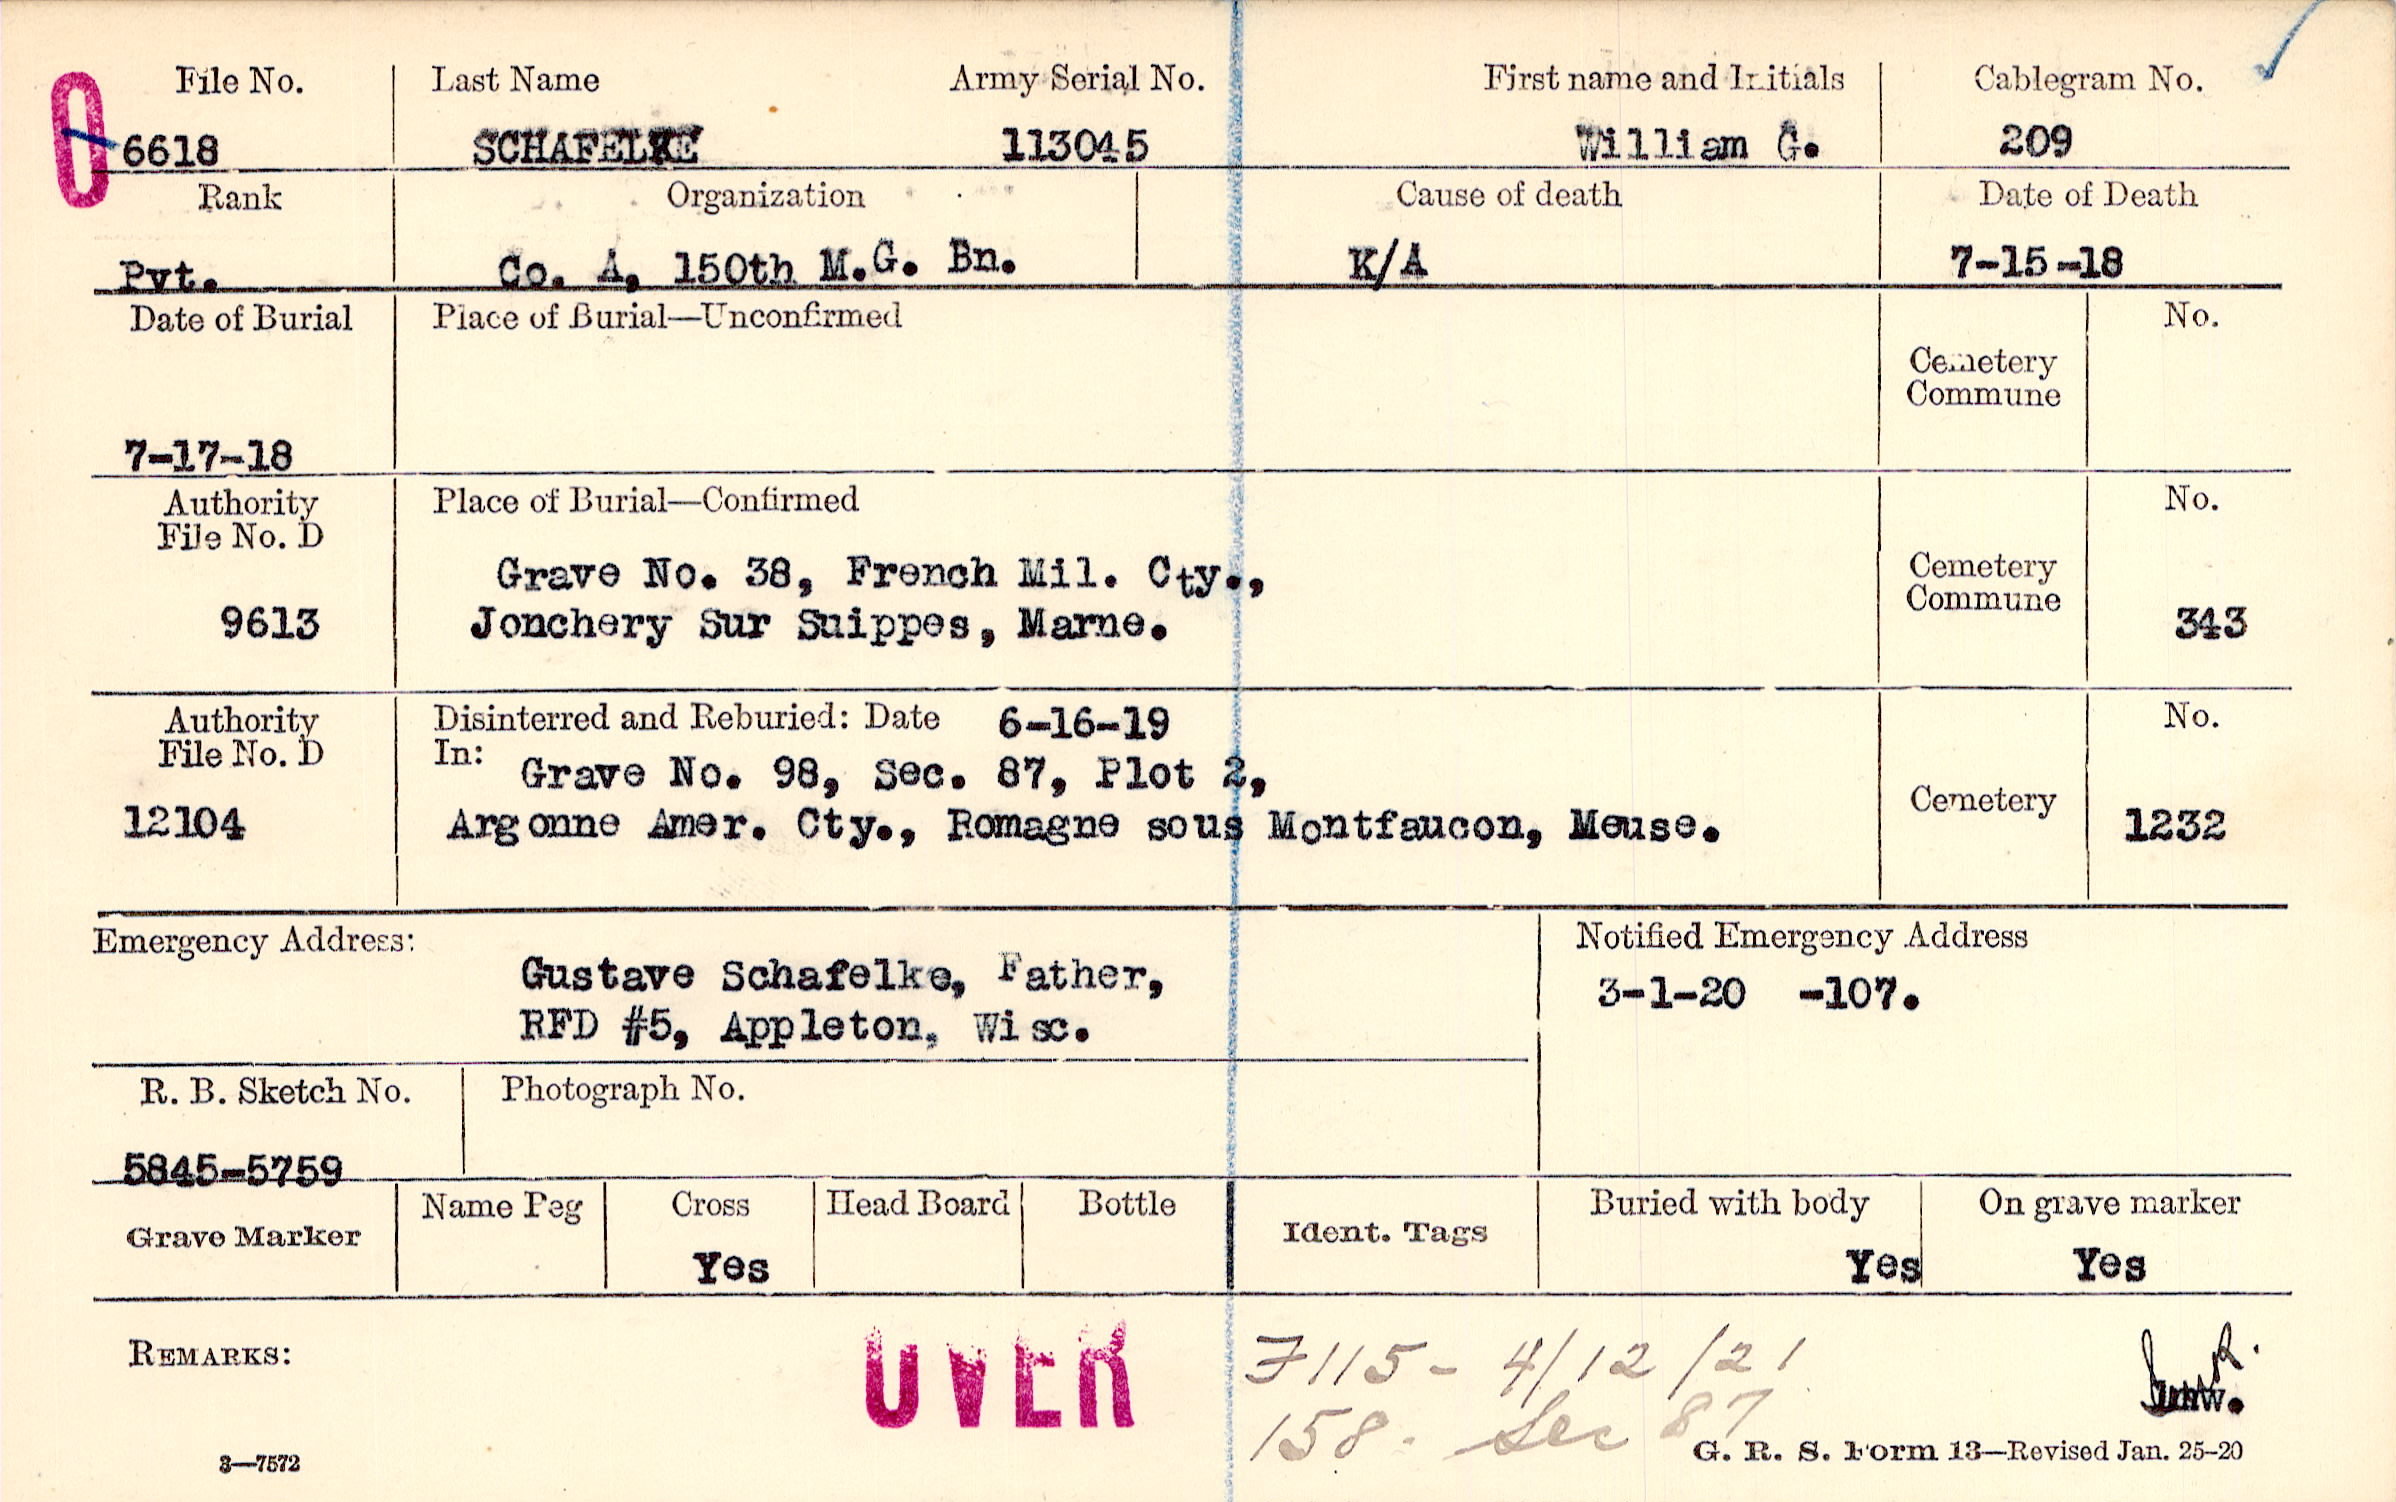 File No. Last Name Army Serial No. First name and Initials Cablegram No.
6618 SCHAFELKE 113045 William G. 209
Rank Organization Cause of death Date of Death
Pvt. Co. A, 150th M.G. Bn. K/A 7-15-18
Date of Burial Place of Burial—Unconfirmed No.
Cemetery
Commune
7-17-18
Authority Place of Burial—Confirmed No.
File No. D
Grave No. 38, French Mil. Cty., Cemetery
Commune
9613 Jonchery Sur Suippes, Marne. 343
Authority Disinterred and Reburied: Date 6-16-19 No.
File No. D In: Grave No. 98, Sec. 87, Plot 2,
Cemetery
12104 Argonne Amer. Cty., Romagne sous Montfaucon, Meuse. 1232
Emergency Address: Notified Emergency Address
Gustave Schafelke, Father, 3-1-20 -107.
RFD #5, Appleton, Wisc.
R. B. Sketch No. Photograph No.
5845-5759
Grave Marker Name Peg Cross Head Board Bottle Ident. Tags Buried with body On grave marker
Yes Yes Yes
REMARKS: OVER 7115- 4/12/21
158. Sec 87
3—7572 G. R. S. Form 13—Revised Jan. 25-20